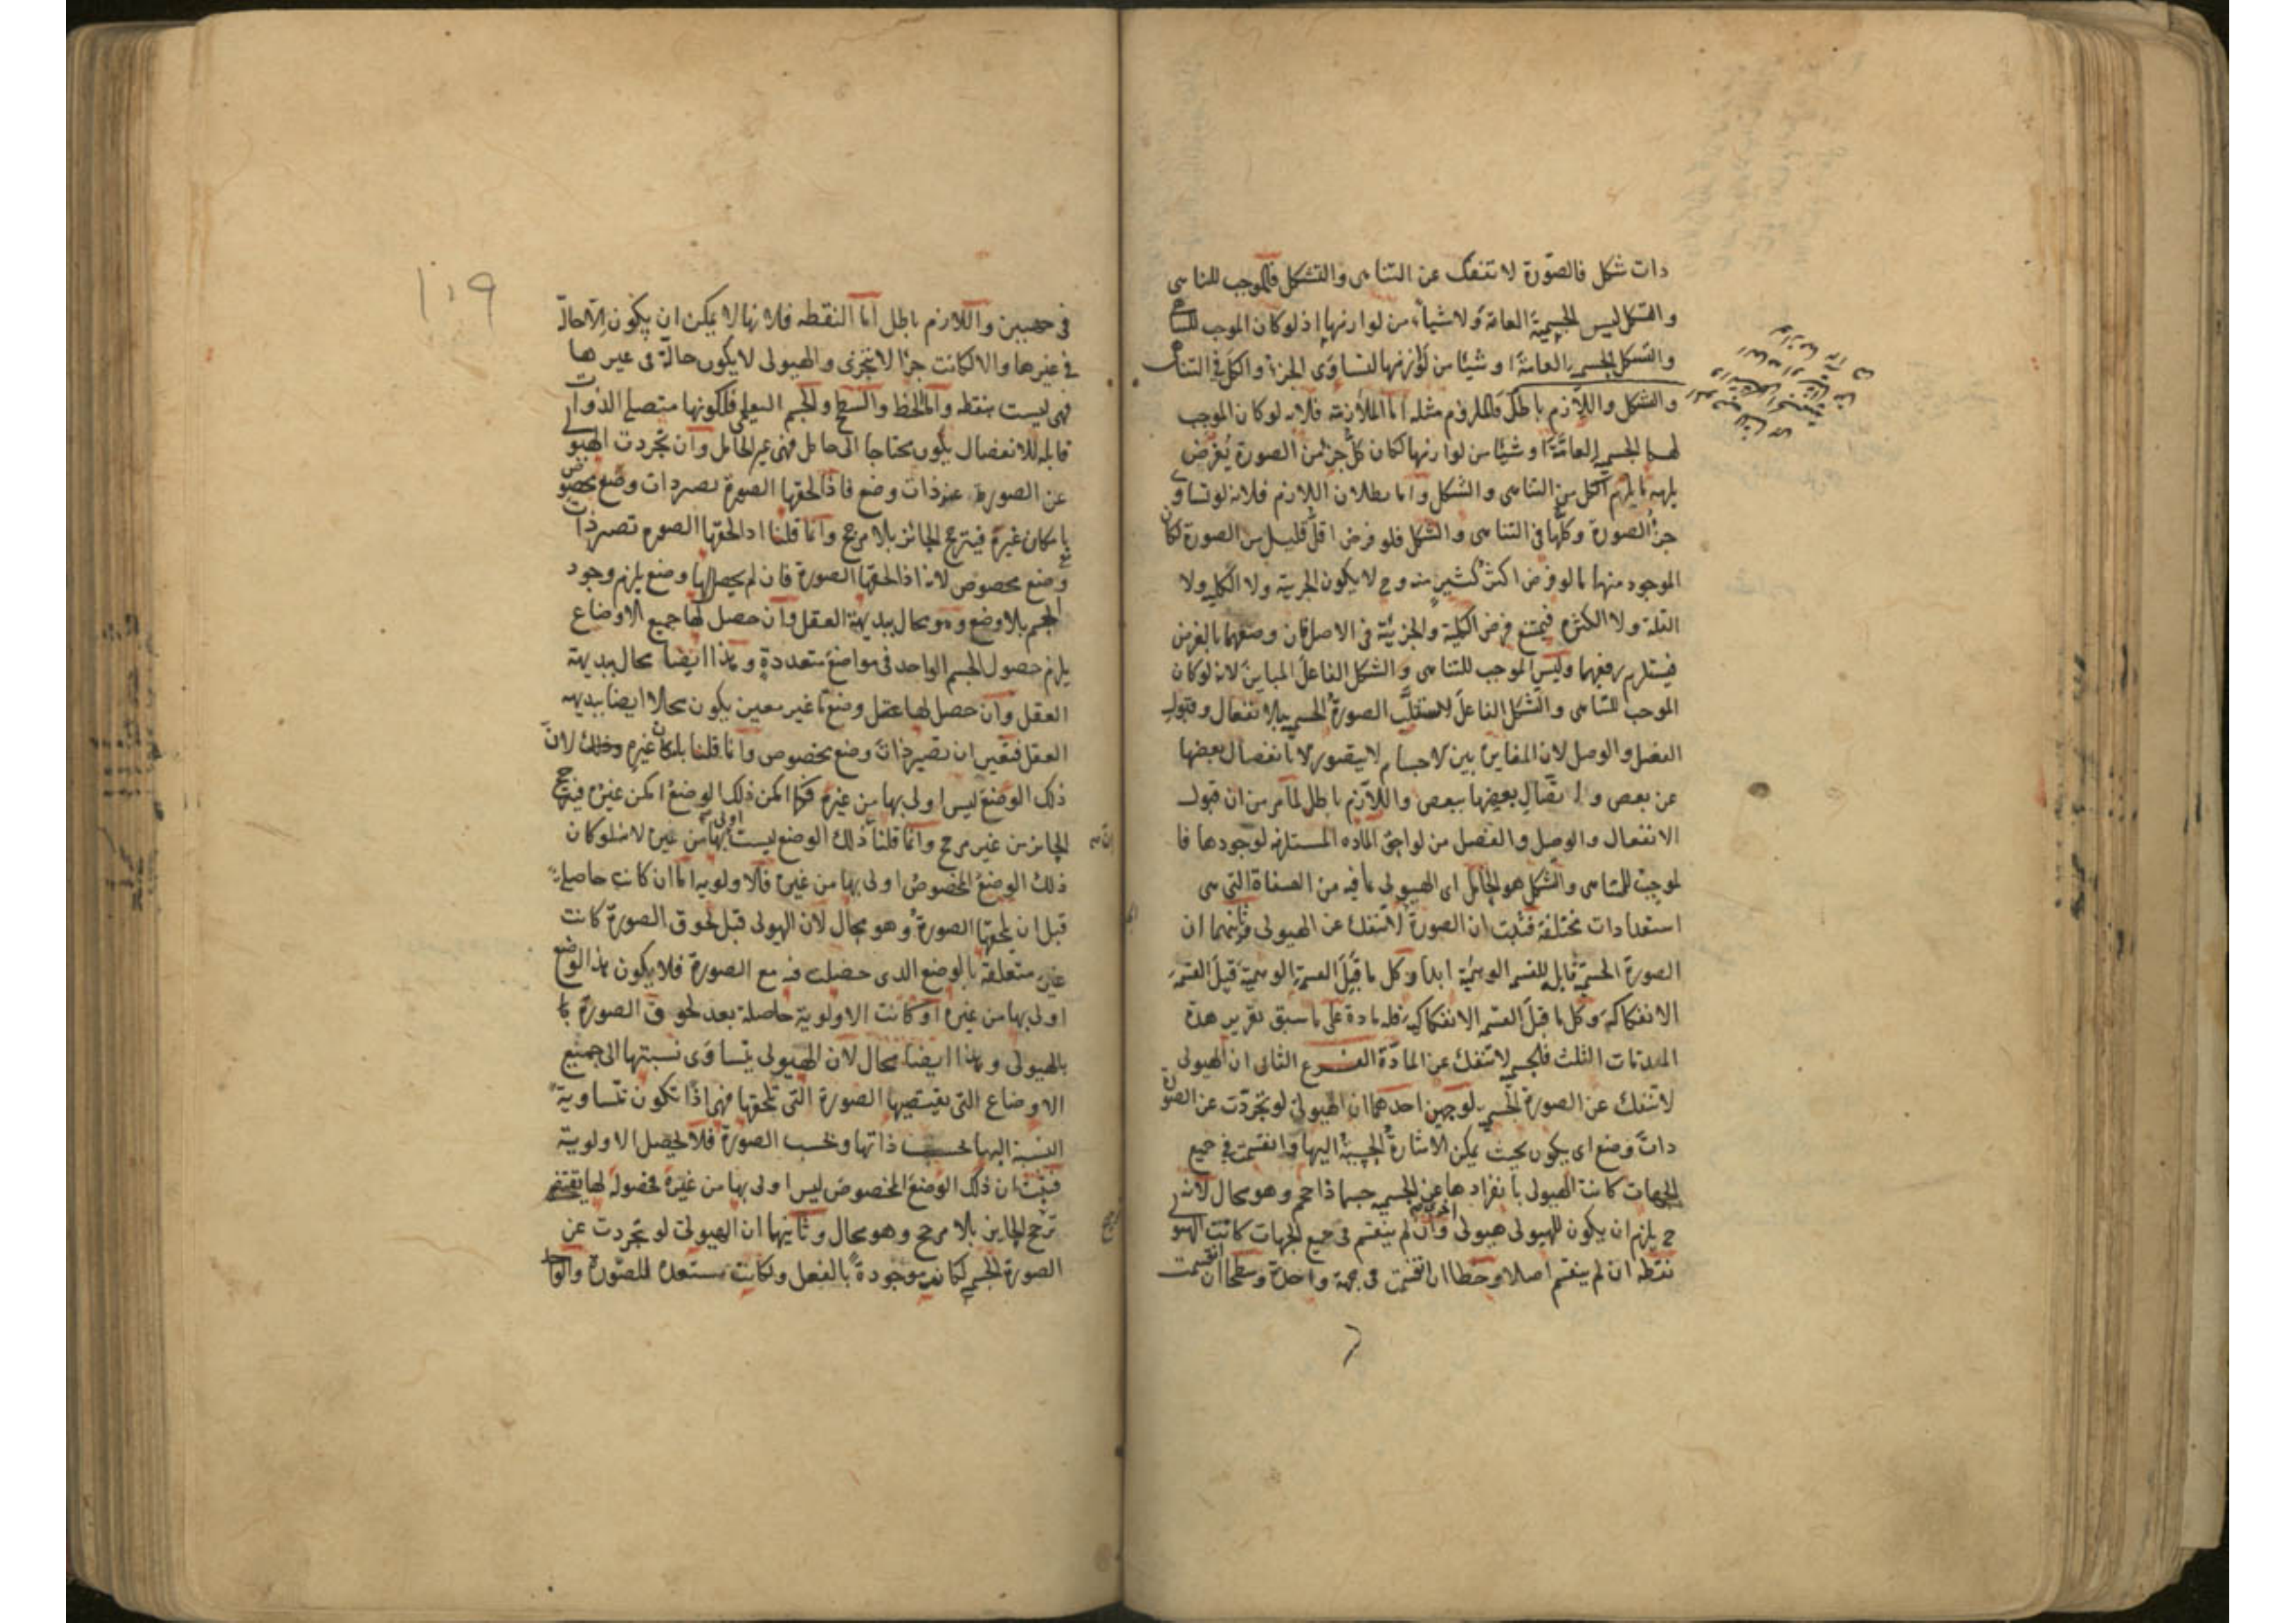 ذات شكل فالصورة لا تنفك عن التناهى والتشكل فالموجب للتناهى
والشكل ليس الجسمية العامة ولا شيأ من لوازمها اذ لو كان الموجب للتناهى
والتشكل الجسمية العامة او شيئا من لوازمها لتساوى الجزء والكل فى التناهى
والشكل واللازم باطل فالملزوم مثله اما الملازمة فلانه لو كان الموجب
لهما الجسمية العامة او شيئا من لوازمها لكان كل جزء من الصورة يفرض
يلزمه ما يلزم الكل من التناهى والشكل واما بطلان اللازم فلانه لو تساوى
جزء الصورة وكلها فى التناهى والشكل فلو فرض اقل قليل من الصورة لكان
الموجود منها ما لو فرض اكثر كثير منه وح لا يكون الجزئية ولا الكلية ولا
القلة ولا الكثرة فيمتنع فرض الكلية والجزئية فى الاصل فان وضعهما بالفرض
فيستلزم رفعهما وليس الموجب للتناهى والشكل الفاعل المباين لانه لو كان
الموجب للتناهى والشكل الفاعل الصورة الجسمية بلا انفعال وقبول
الفصل والوصل لان المغايرة بين الاجسام لا يتصور الا بانفصال بعضها
عن بعض واتصال بعضها ببعض واللازم باطل لما مر من ان قبول
الانفعال والوصل والفصل من لواحق المادة المستلزمة لوجودها فا
لموجب للتناهى والشكل هو الحامل اى الهيولى بما فيه من الصفاة التى هى
استعدادات مختلفة فثبت ان الصورة لا تنفك عن الهيولى وثانيهما ان
الصورة الجسمية قابلة للقسمة الوهمية ابدا وكل ما قبل القسمة الوهمية قبل القسمة
الانفكاكية وكل ما قبل القسمة الانفكاكية فله مادة على ما سبق تقرير هذه
المقدمات الثلث فالجسمية لا تنفك عن المادة الفرع الثانى ان الهيولى
لا تنفك عن الصورة الجسمية لوجهين احدهما ان الهيولى لو تجردت عن الصورة
ذات وضع اى يكون بحيث يمكن الاشارة الحسية اليها وانقسمت فى جميع
الجهات كانت الهيولى بانفرادها عن الجسمية جسما ذا حجم وهو محال لانه
ح يلزم ان يكون للهيولى هيولى اخرى وان لم ينقسم فى جميع الجهات كانت الهيولى
نقطة ان لم ينقسم اصلا وخطا ان انقسمت فى جهة واحدة وسطحا ان انقسمت
١٠٩
فى جهتين واللازم باطل اما النقطة فلانها لا يمكن ان يكون الا حالة
فى غيرها والا لكانت جزءا لا يتجزى والهيولى لا يكون حالة فى غيرها
فهى ليست بنقطة واما الخط والسطح والجسم التعليمى فلكونها متصلة الذوات
قابلة للانفصال يكون محتاجا الى حامل فهى غير الحامل وان تجردت الهيولى
عن الصورة غير ذات وضع فاذا لحقها الصورة تصير ذات وضع مخصوص
بامكان غيره فيترجح الجائز بلا مرجح وانما قلنا اذا لحقها الصورة تصير ذات
وضع مخصوص لانه اذا لحقها الصورة فان لم يحصل لها وضع يلزم وجود
الجسم بلا وضع وهو محال ببديهة العقل وان حصل لها جميع الاوضاع
يلزم حصول الجسم الواحد فى مواضع متعددة وهذا ايضا محال ببديهة
العقل وان حصل لها وضع ما غير معين يكون محالا ايضا ببديهة
العقل فتعين ان تصير ذات وضع مخصوص وانما قلنا بامكان غيره وذلك لان
ذلك الوضع ليس اولى بها من غيره فكما امكن ذلك الوضع امكن غيره فيترجح
الجائز من غير مرجح وانما قلنا ان ذلك الوضع ليست اولى بها من غيره لانه لو كان
ذلك الوضع المخصوص اولى بها من غيره فالاولوية اما ان كانت حاصلة
قبل ان يلحقها الصورة وهو محال لان الهيولى قبل لحوق الصورة كانت
غير متعلقة بالوضع الذى حصلت فيه مع الصورة فلا يكون هذا الوضع
اولى بها من غيره او كانت الاولوية حاصلة بعد لحوق الصورة با
بالهيولى وهذا ايضا محال لان الهيولى يتساوى نسبتها الى جميع
الاوضاع التى يقتضيها الصورة التى تلحقها فهى اذا تكون متساوية
النسبة اليها بحسب ذاتها وبحسب الصورة فلا يحصل الاولوية
فثبت ان ذلك الوضع المخصوص ليس اولى بها من غيره فحصوله لها يقتضى
ترجح الجايز بلا مرجح وهو محال وثانيهما ان الهيولى لو تجردت عن
الصورة الجسمية لكانت موجودة بالفعل ولكانت مستعدة للصورة والواحد